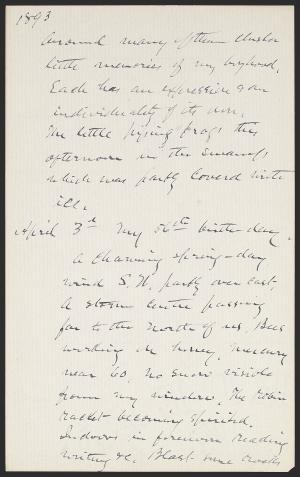 1893
around many of them cluster
little memories of my boyhood.
Each has an expression & an
individuality of its own.
The little piping frogs this
afternoon in the swamp
which was partly covered with
ice.
April 3d My 56th birth-day.
a charming spring-day
wind S.W. partly over cast,
A storm centre passing
far to the North of us. Bees
working on honey, mercury
near 60, no snow visible
from my window. The robin
racket becoming spirited.
Indoors in forenoon reading
writing &c. Blast some rocks